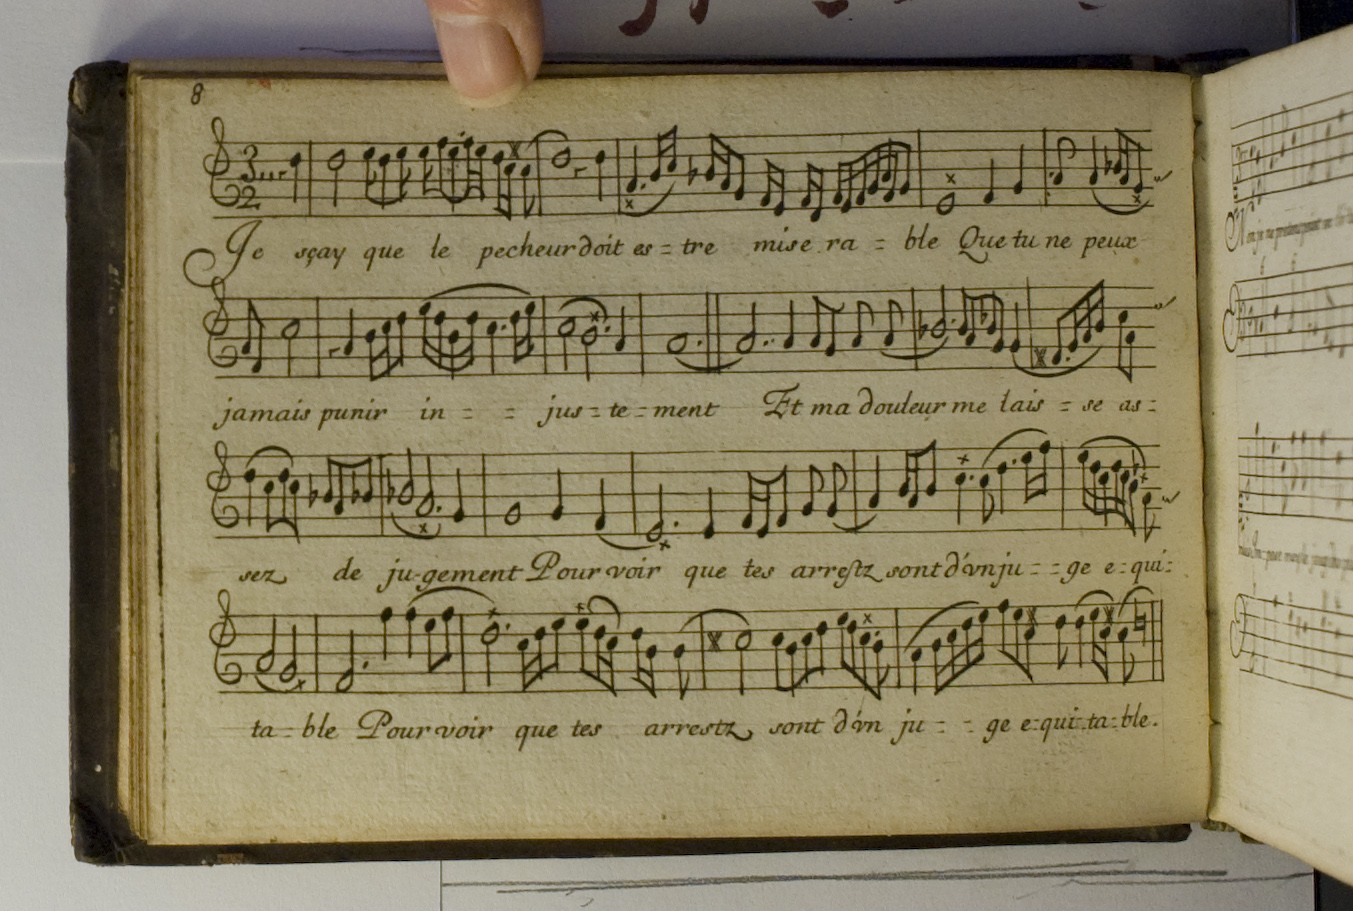 8
3 2
Je sçay que le pecheur doit es = tre mise ra = ble Que tu ne peux
jamais punir in = = jus = te = ment Et ma douleur me lais = se as =
sez de ju-gement Pour voir que tes arrestz sont d'vn ju = = ge e = qui =
ta = ble Pour voir que tes arrestz sont d'vn ju = = ge e = qui = ta = ble.